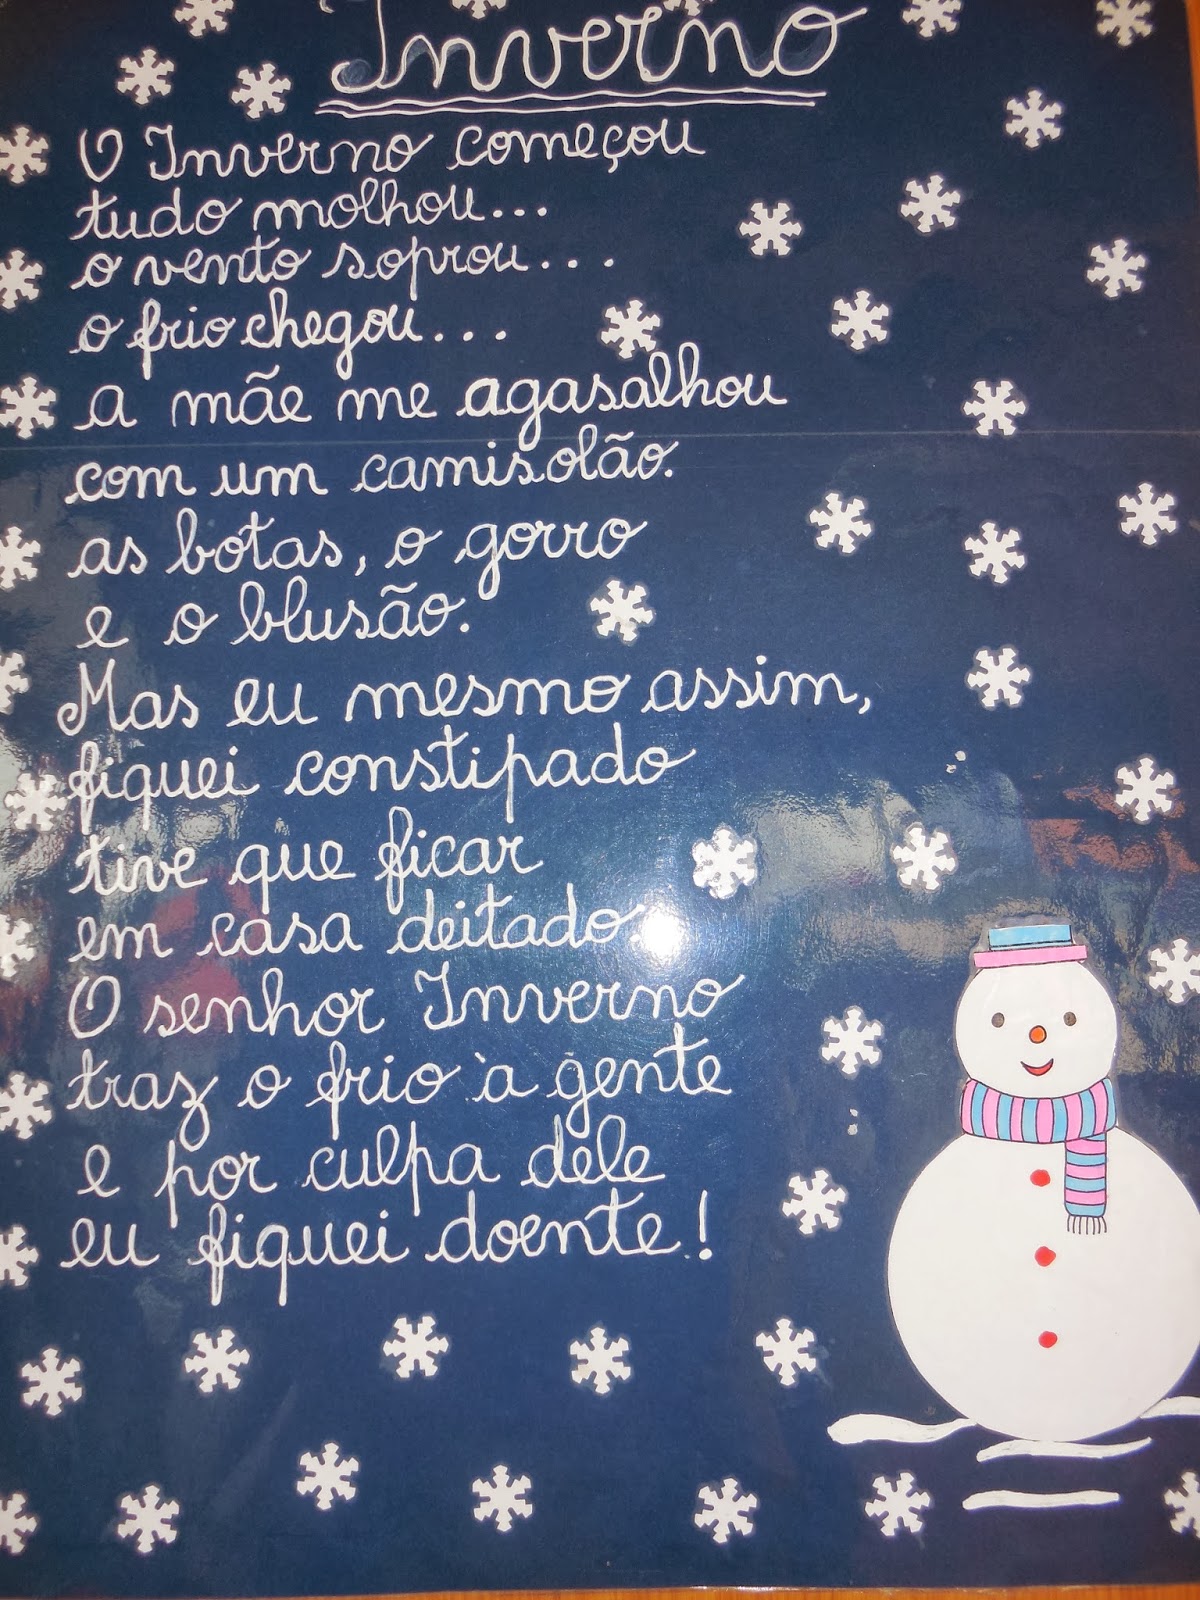 Inverno
O Inverno começou
tudo molhou...
o vento soprou...
o frio chegou...
a mãe me agasalhou
com um camisolão.
as botas, o gorro
e o blusão.
Mas eu mesmo assim,
fiquei constipado
tive que ficar
em casa deitado.
O senhor Inverno
traz o frio à gente
e por culpa dele
eu fiquei doente!